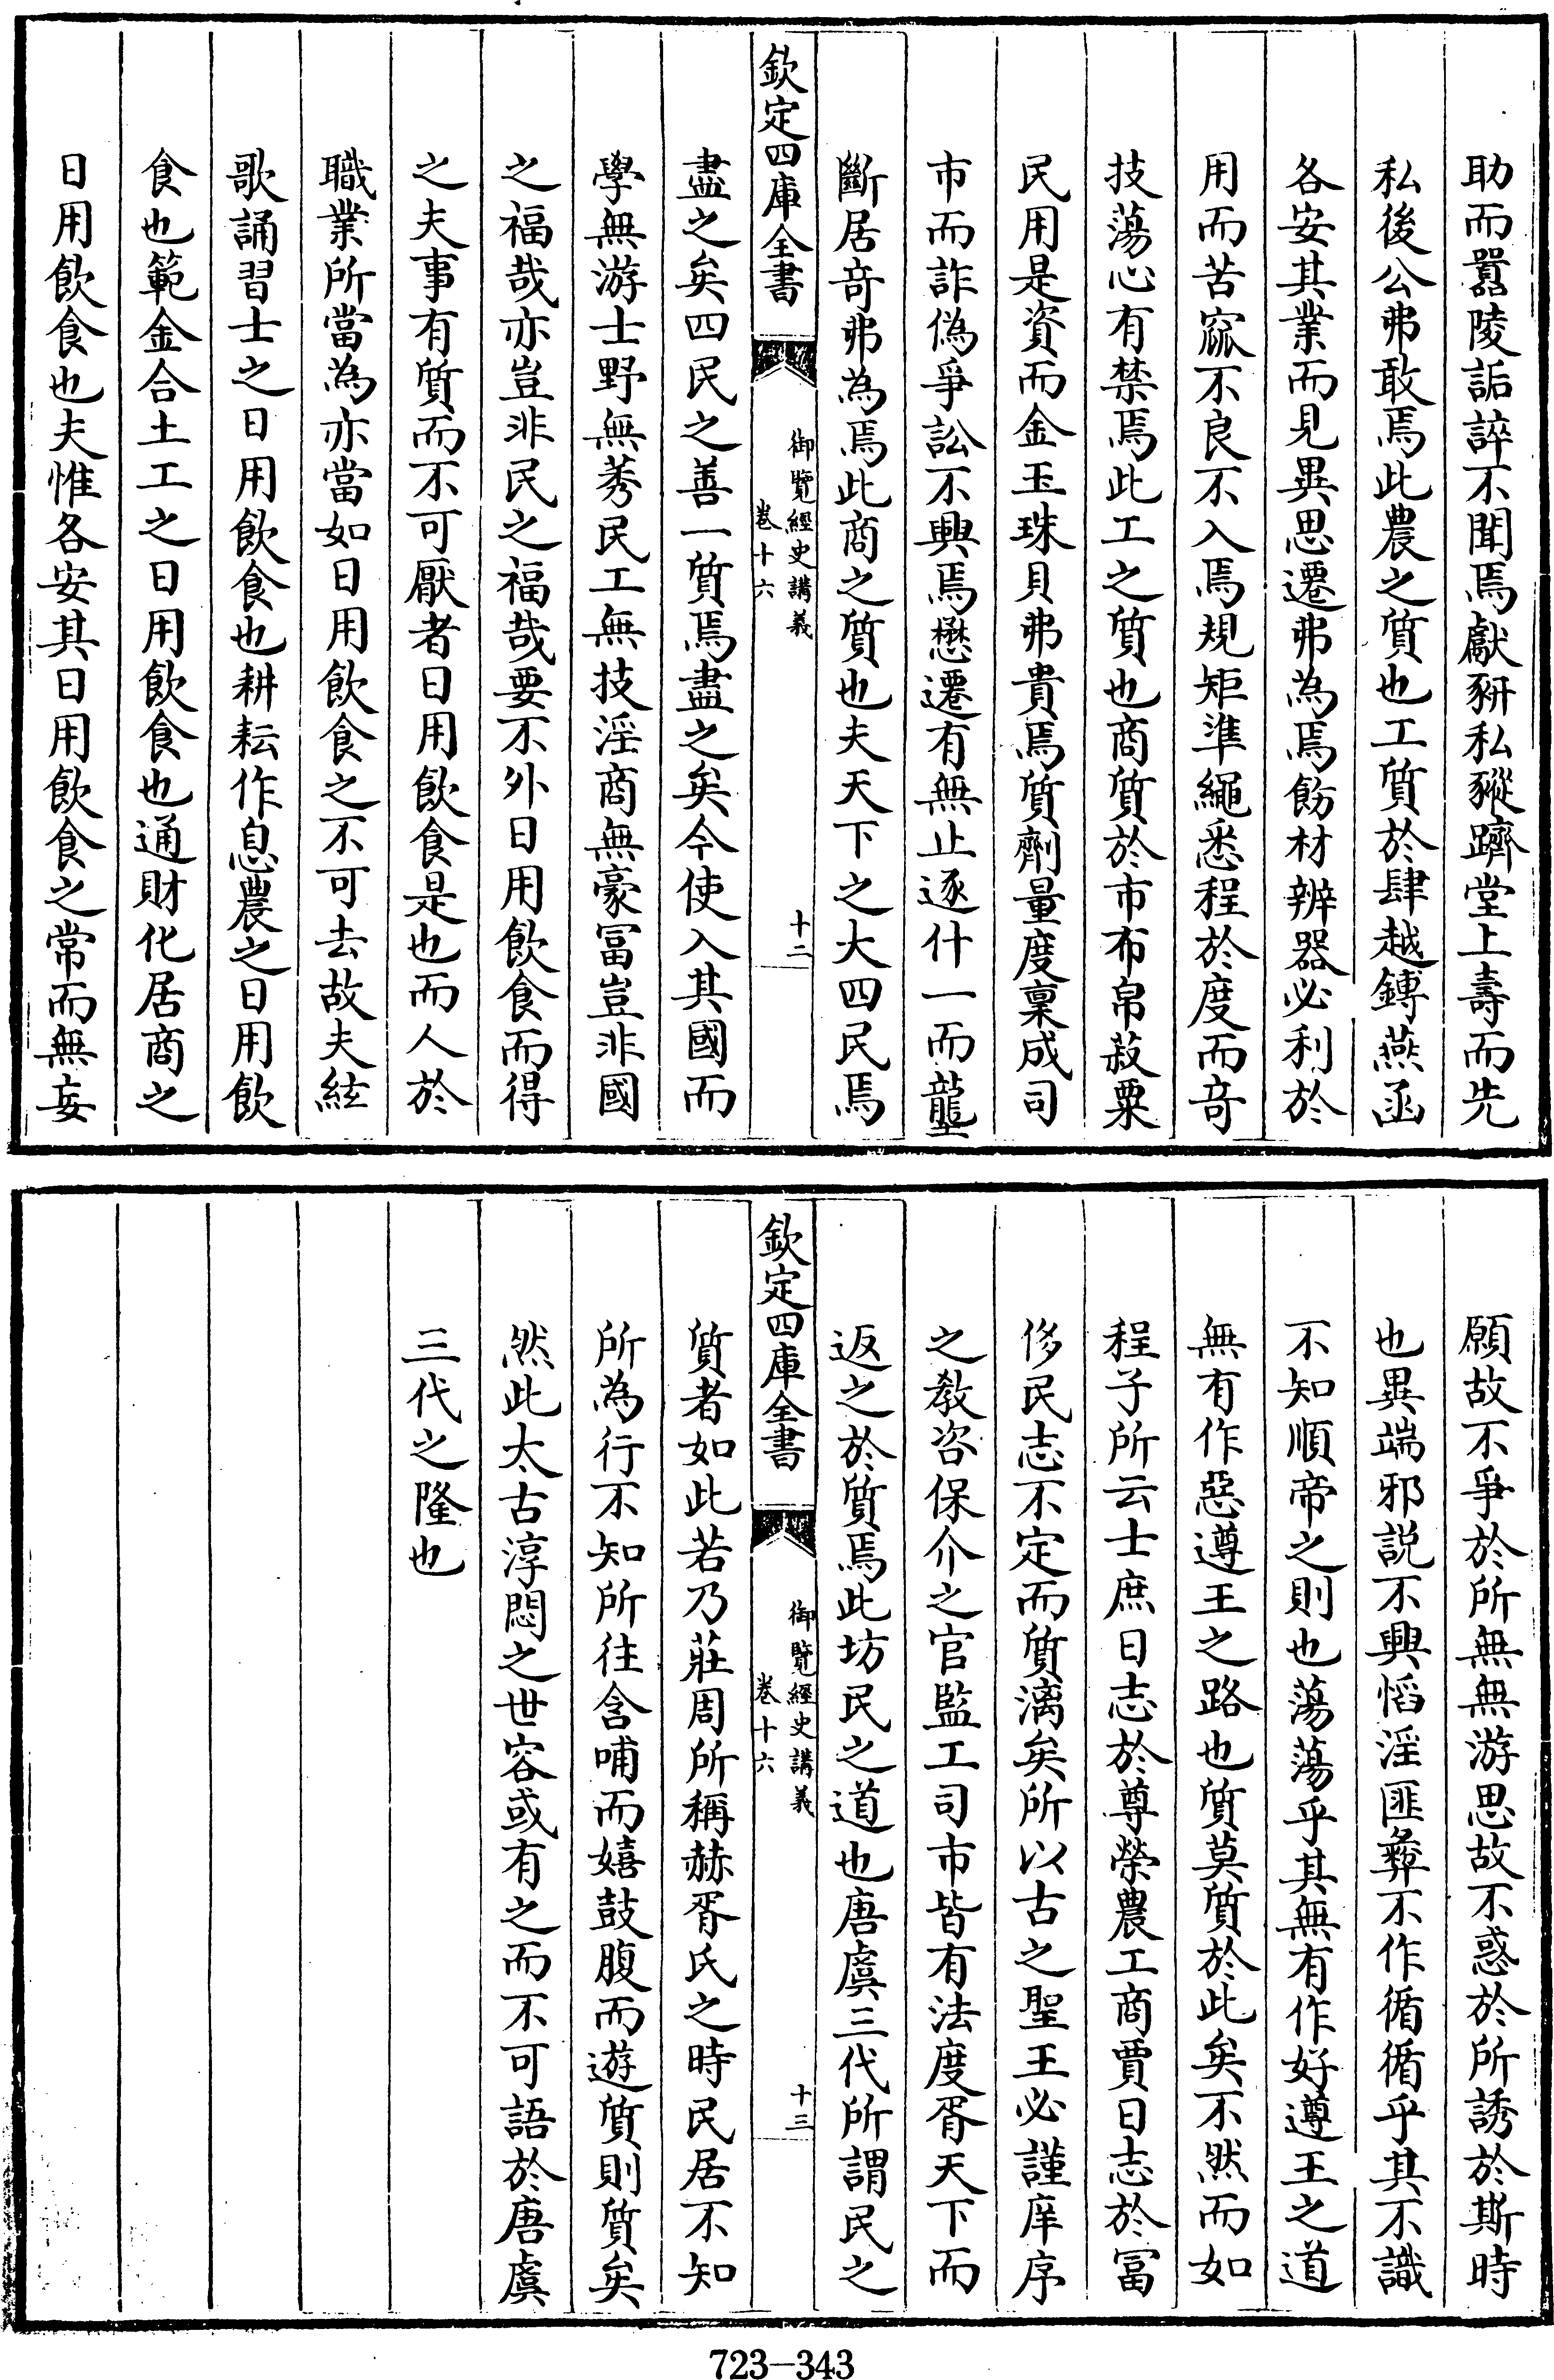 助而嚚陵詬誶不聞焉獻豜私豵躋堂上壽而先
私後公弗敢焉此農之質也工質於肆越鎛燕函
各安其業而見異思遷弗為焉飭材辨器必利於
用而苦窳不良不入焉規矩準繩悉程於度而竒
技蕩心有禁焉此工之質也商質於市布帛菽粟
民用是資而金玉珠貝弗貴焉質劑量度稟成司
市而詐偽爭訟不興焉懋遷有無止逐什一而龍
斷居竒弗為焉此商之質也夫天下之大四民焉
欽定四庫全書
御覽經史講義
卷十六
十二
盡之矣四民之善一質焉盡之矣今使入其國而
學無游士野無莠民工無技淫商無豪冨豈非國
之福哉亦豈非民之福哉要不外日用飲食而得
之夫事有質而不可厭者日用飲食是也而人於
職業所當為亦當如日用飲食之不可去故夫絃
歌誦習士之日用飲食也耕耘作息農之日用飲
食也範金合土工之日用飲食也通財化居商之
日用飲食也夫惟各安其日用飲食之常而無妄
願故不爭於所無無游思故不惑於所誘於斯時
也異端邪説不興慆淫匪彞不作循循乎其不識
不知順帝之則也蕩蕩乎其無有作好遵王之道
無有作惡遵王之路也質莫質於此矣不然而如
程子所云士庶日志於尊榮農工商賈日志於冨
侈民志不定而質漓矣所以古之聖王必謹庠序
之教咨保介之官監工司市皆有法度胥天下而
返之於質焉此坊民之道也唐虞三代所謂民之
欽定四庫全書
御覽經史講義
卷十六
十三
質者如此若乃莊周所稱赫胥氏之時民居不知
所為行不知所往含哺而嬉鼓腹而遊質則質矣
然此太古淳悶之世容或有之而不可語於唐虞
三代之隆也
723-343